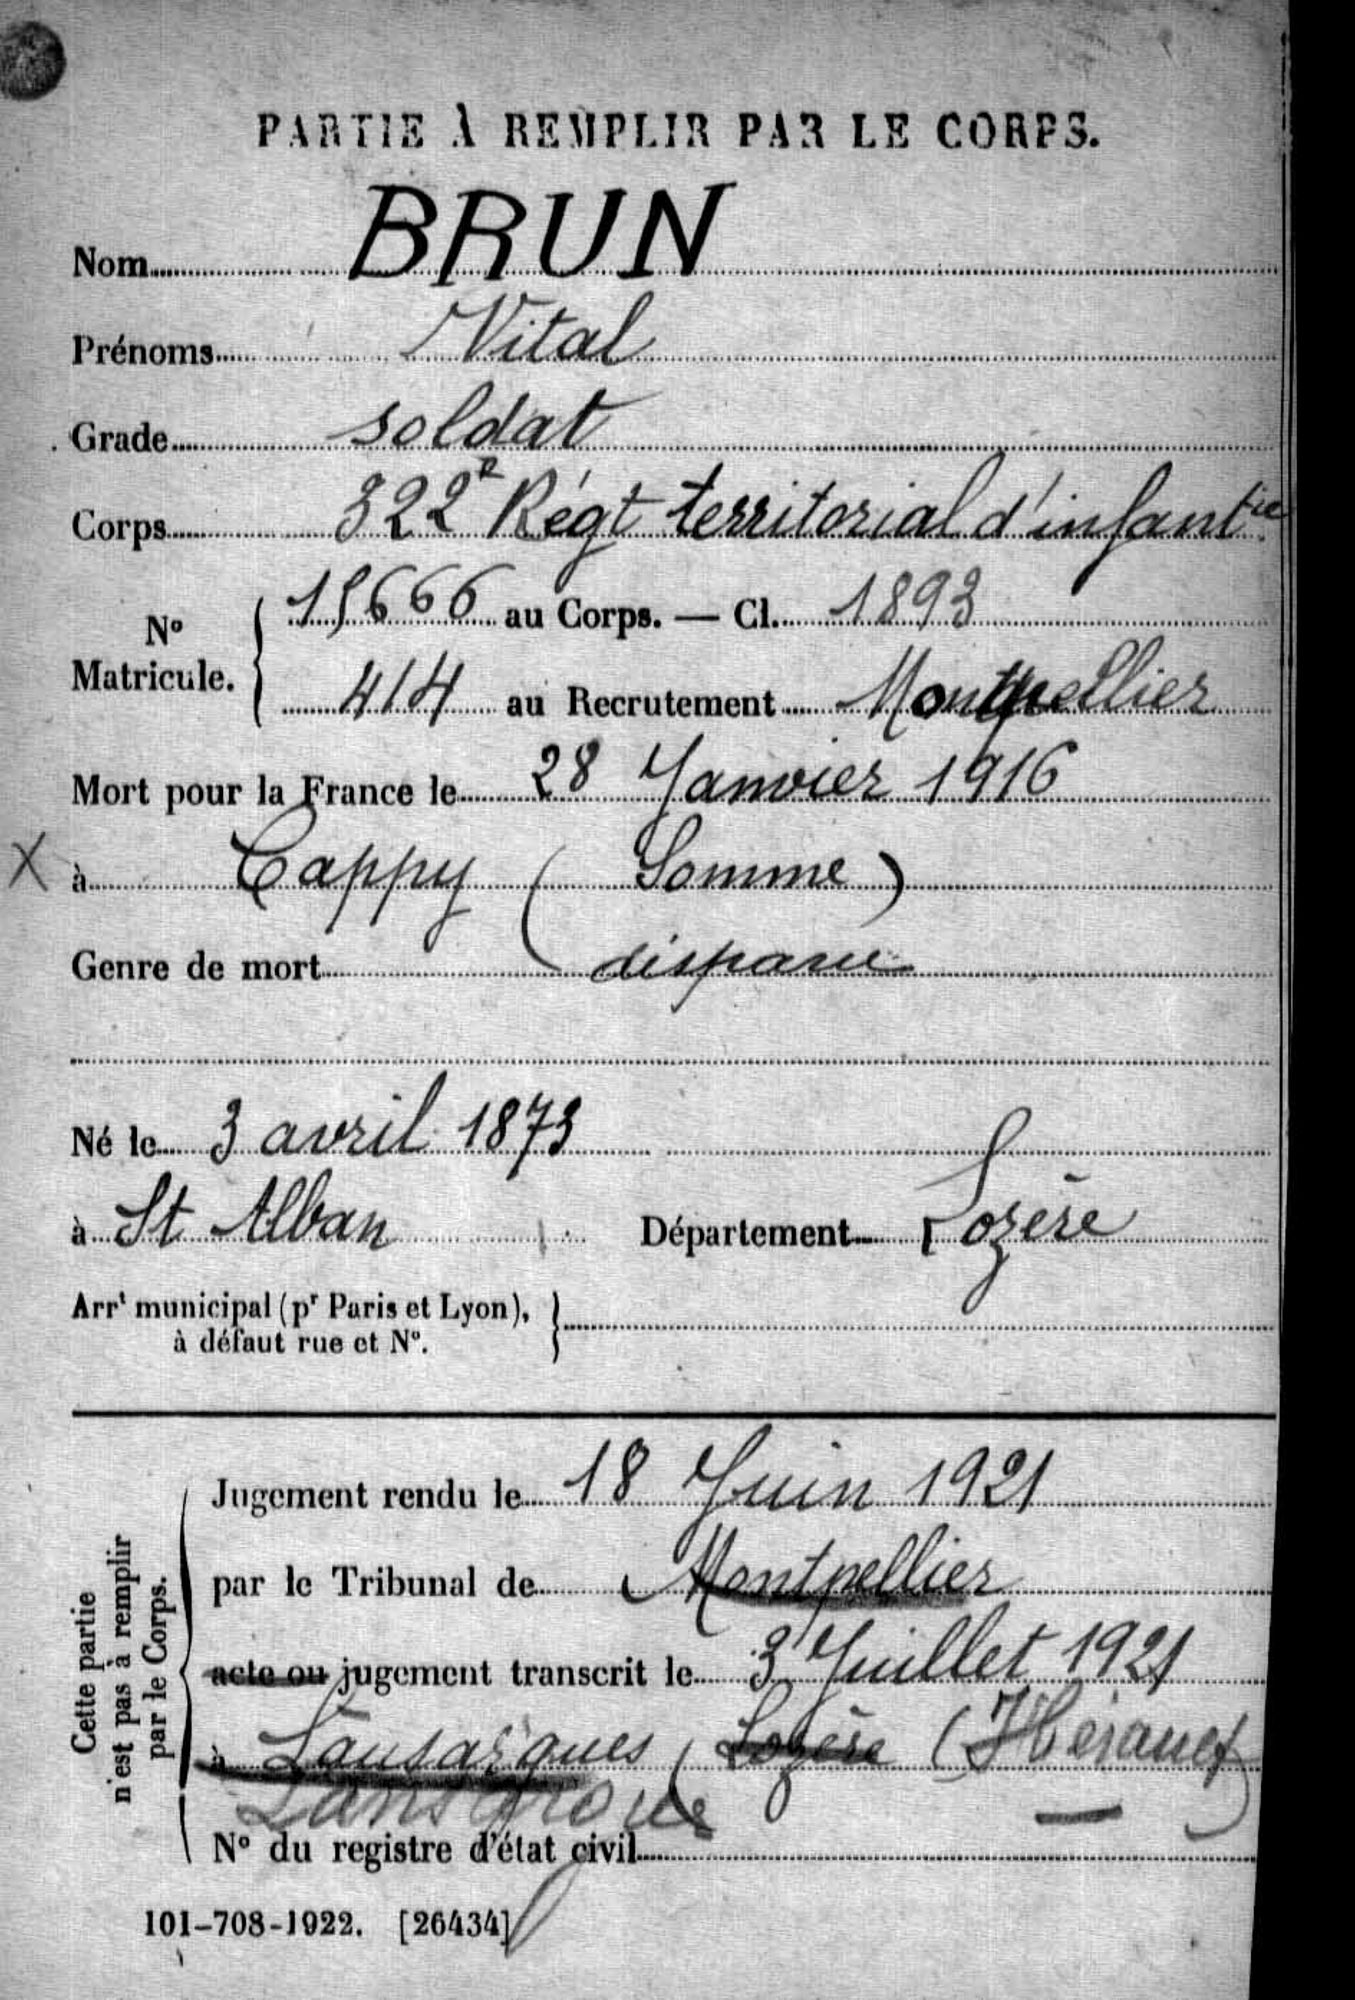 PARTIE À REMPLIR PAR LE CORPS.
Nom BRUN
Prénoms Vital
Grade soldat
Corps 322e Régt territorial d'infantie
No Matricule. 15666 au Corps. — Cl. 1893
414 au Recrutement Montpellier
Mort pour la France le 28 Janvier 1916
X à Cappy (Somme)
Genre de mort disparu
Né le 3 avril 1873
à St Alban Département Lozère
Arrt municipal (pr Paris et Lyon),
à défaut rue et No.
Cette partie
n'est pas à remplir
par le Corps.
Jugement rendu le 18 Juin 1921
par le Tribunal de Montpellier
acte ou jugement transcrit le 3 Juillet 1921
à Lansargues (Lozère (Hérault)
No du registre d'état civil
101-708-1922. [26434]